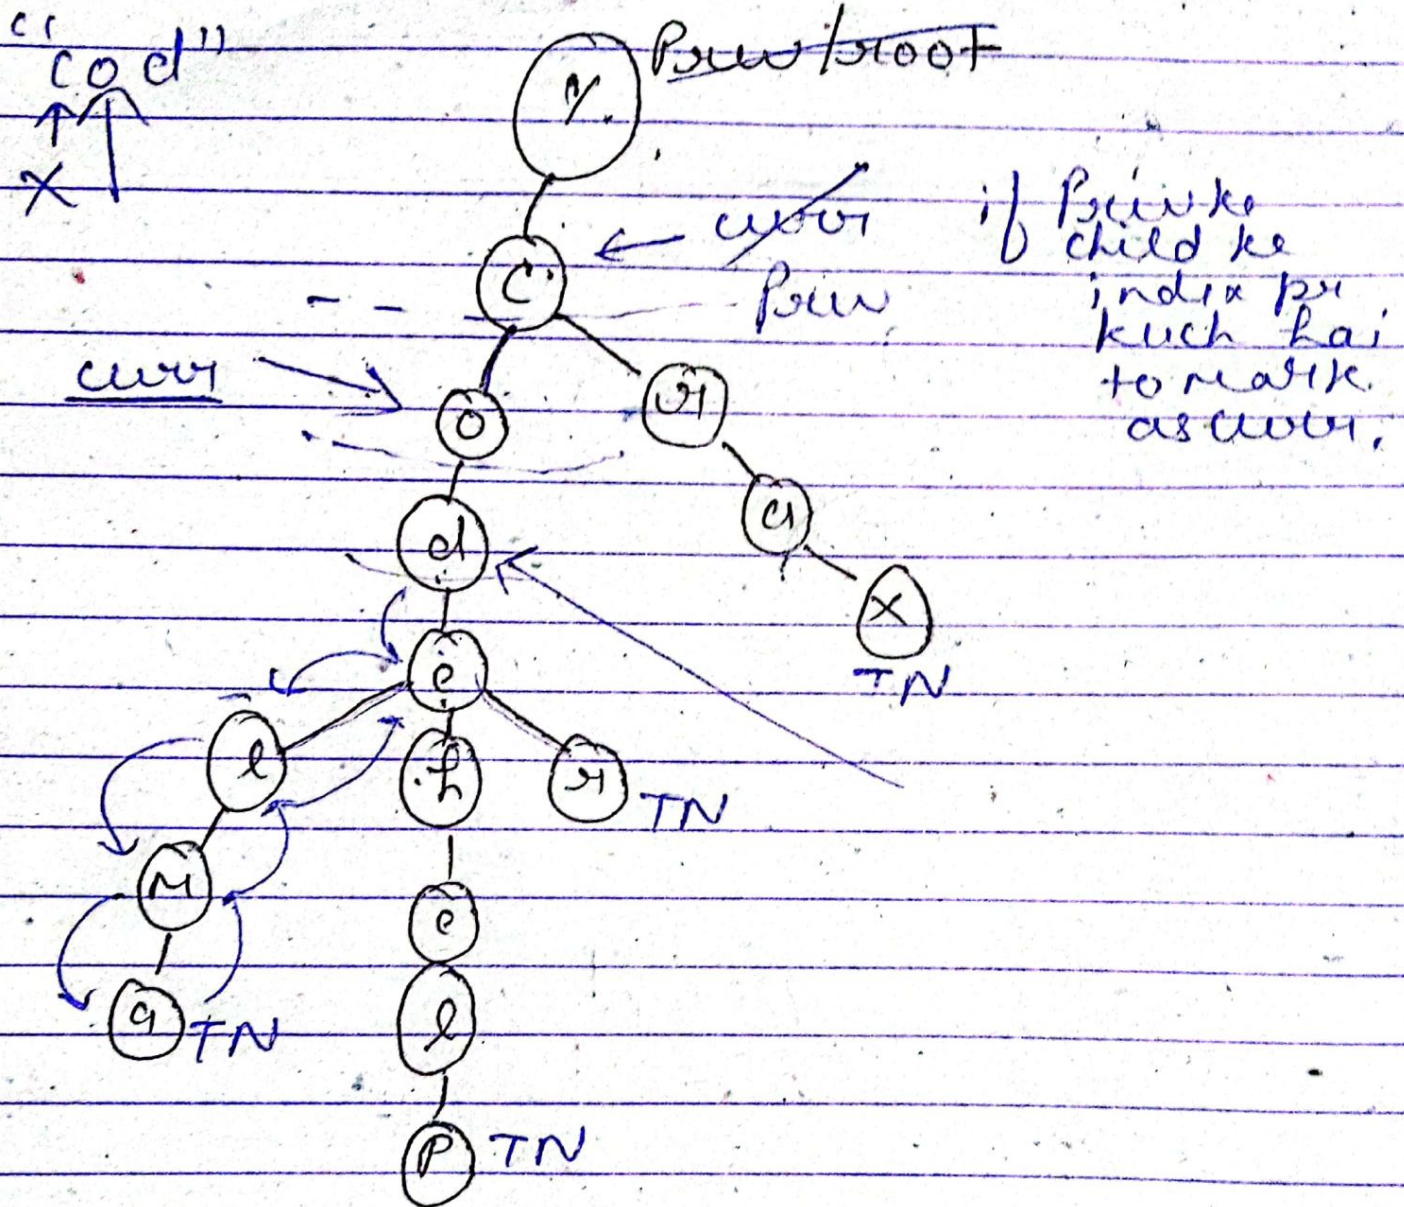 "cod"
Prev/root
X
curr
Prev
if Prev ke
child ke
index pr
kuch hai
to mark
as curr.
C
curr
o
r
d
a
e
x
TN
l
h
r
TN
M
e
a
TN
l
P
TN